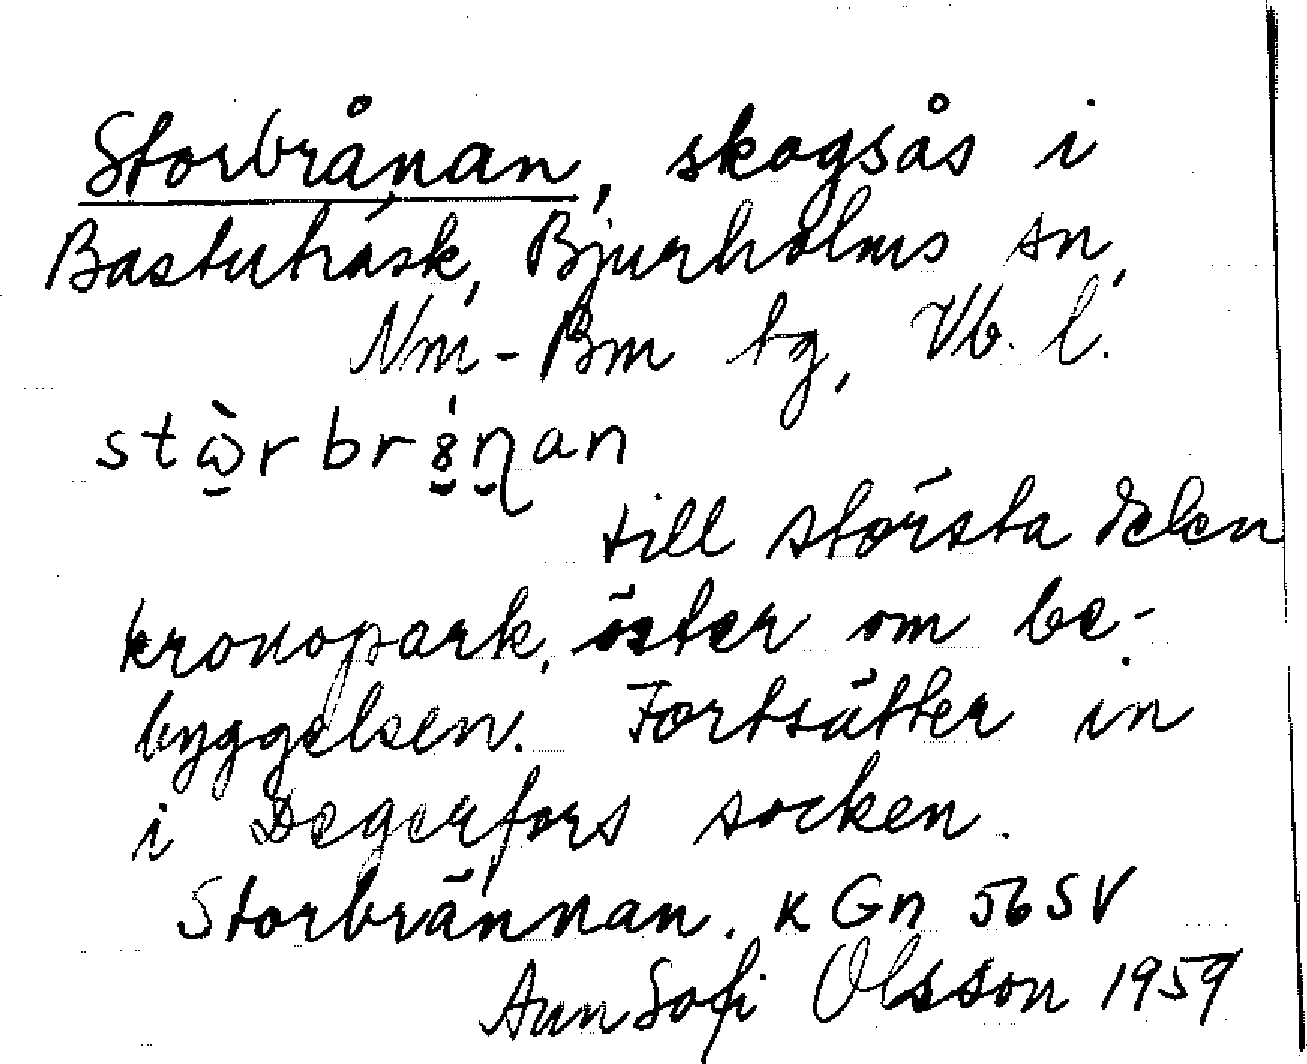 Storbrånan, skogsås i
Bastuträsk, Bjurholms sn,
Nm-Bm tg, Vb. l.
till största delen
kronopark, öster om be-
byggelsen. Fortsätter in
i Degerfors socken.
Storbrännan. K Gn 56 SV
Ann Sofi Olsson 1959